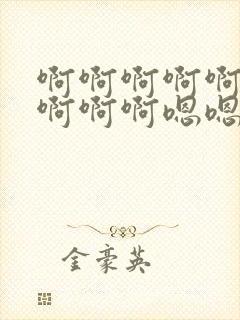 啊啊啊啊啊
啊啊啊嗯嗯
金豪英